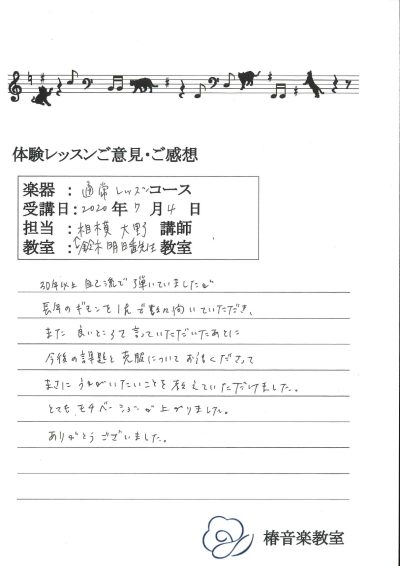 体験レッスンご意見・ご感想
楽器 : 通常レッスンコース
受講日:2020年7月4日
担当 : 相模大野 講師
教室 : 鈴木明日香先生 教室
30年以上 自己流で弾いていましたが
長年のギモンを1点 向いていただき、
また 良いところも言っていただいたあとに
今後の課題と克服について お話くださって
まさに うかがいたいことを教えていただけました。
とても モチベーションが上がりました。
ありがとうございました。
椿音楽教室